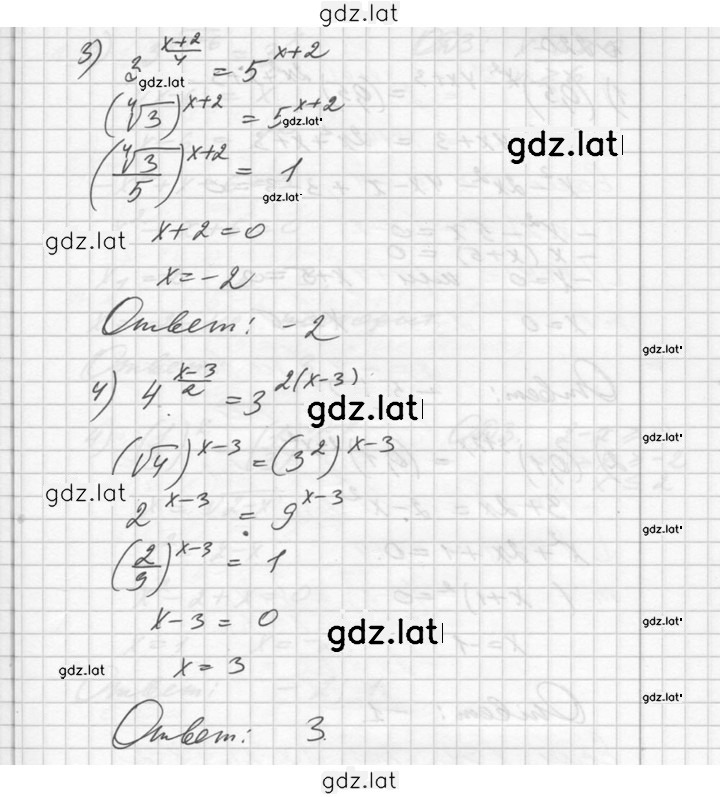 gdz.lat
3) 3^((x+2)/4) = 5^(x+2)
gdz.lat
(⁴√3)^(x+2) = 5^(x+2)
gdz.lat
gdz.lat
(⁴√3/5)^(x+2) = 1
gdz.lat
gdz.lat
x+2=0
x=-2
Ответ: -2
gdz.lat
4) 4^((x-3)/2) = 3^(2(x-3))
gdz.lat
(√4)^(x-3) = (3²)^(x-3)
gdz.lat
gdz.lat
2^(x-3) = 9^(x-3)
gdz.lat
(2/9)^(x-3) = 1
x-3 = 0
gdz.lat
gdz.lat
x = 3
gdz.lat
gdz.lat
Ответ: 3.
gdz.lat